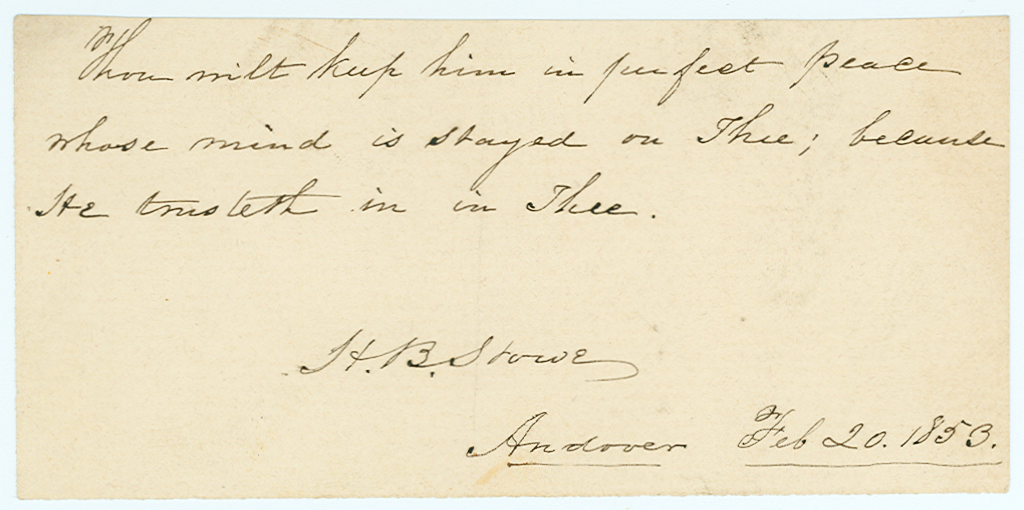 Thou wilt keep him in perfect peace
whose mind is stayed on Thee; because
He trusteth in in Thee.
H. B. Stowe
Andover Feb 20. 1853.